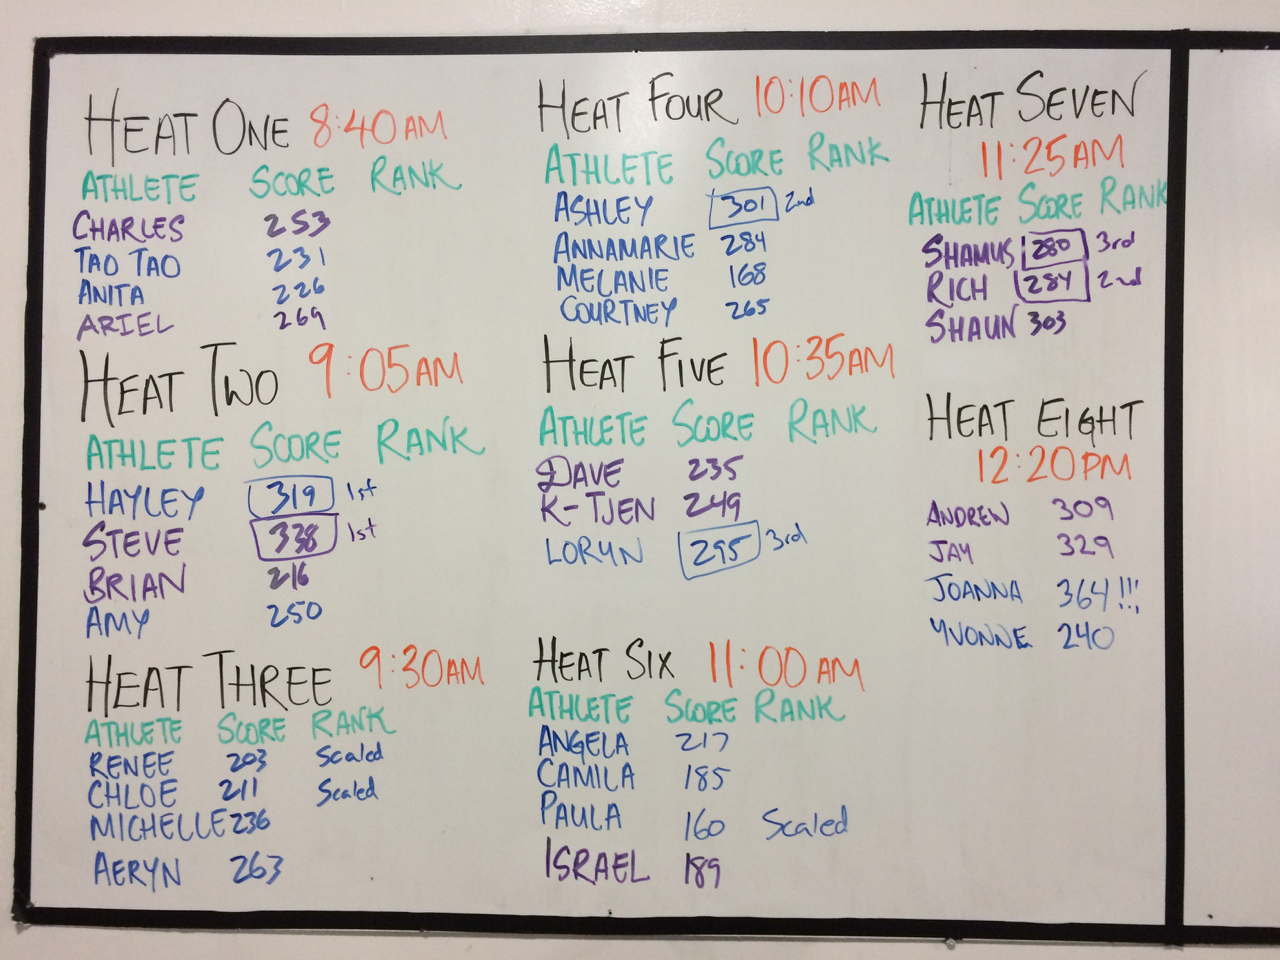 HEAT ONE 8:40AM
ATHLETE SCORE RANK
CHARLES 253
TAO TAO 231
ANITA 226
ARIEL 269
HEAT TWO 9:05AM
ATHLETE SCORE RANK
HAYLEY 319 1st
STEVE 338 1st
BRIAN 216
AMY 250
HEAT THREE 9:30AM
ATHLETE SCORE RANK
RENEE 203 Scaled
CHLOE 211 Scaled
MICHELLE 236
AERYN 263
HEAT FOUR 10:10AM
ATHLETE SCORE RANK
ASHLEY 301 2nd
ANNAMARIE 284
MELANIE 168
COURTNEY 265
HEAT FIVE 10:35AM
ATHLETE SCORE RANK
DAVE 235
K-TJEN 249
LORYN 295 3rd
HEAT SIX 11:00AM
ATHLETE SCORE RANK
ANGELA 217
CAMILA 185
PAULA 160 Scaled
ISRAEL 189
HEAT SEVEN
11:25AM
ATHLETE SCORE RANK
SHAMUS 280 3rd
RICH 284 2nd
SHAUN 303
HEAT EIGHT
12:20PM
ANDREW 309
JAY 329
JOANNA 364!!!
YVONNE 240